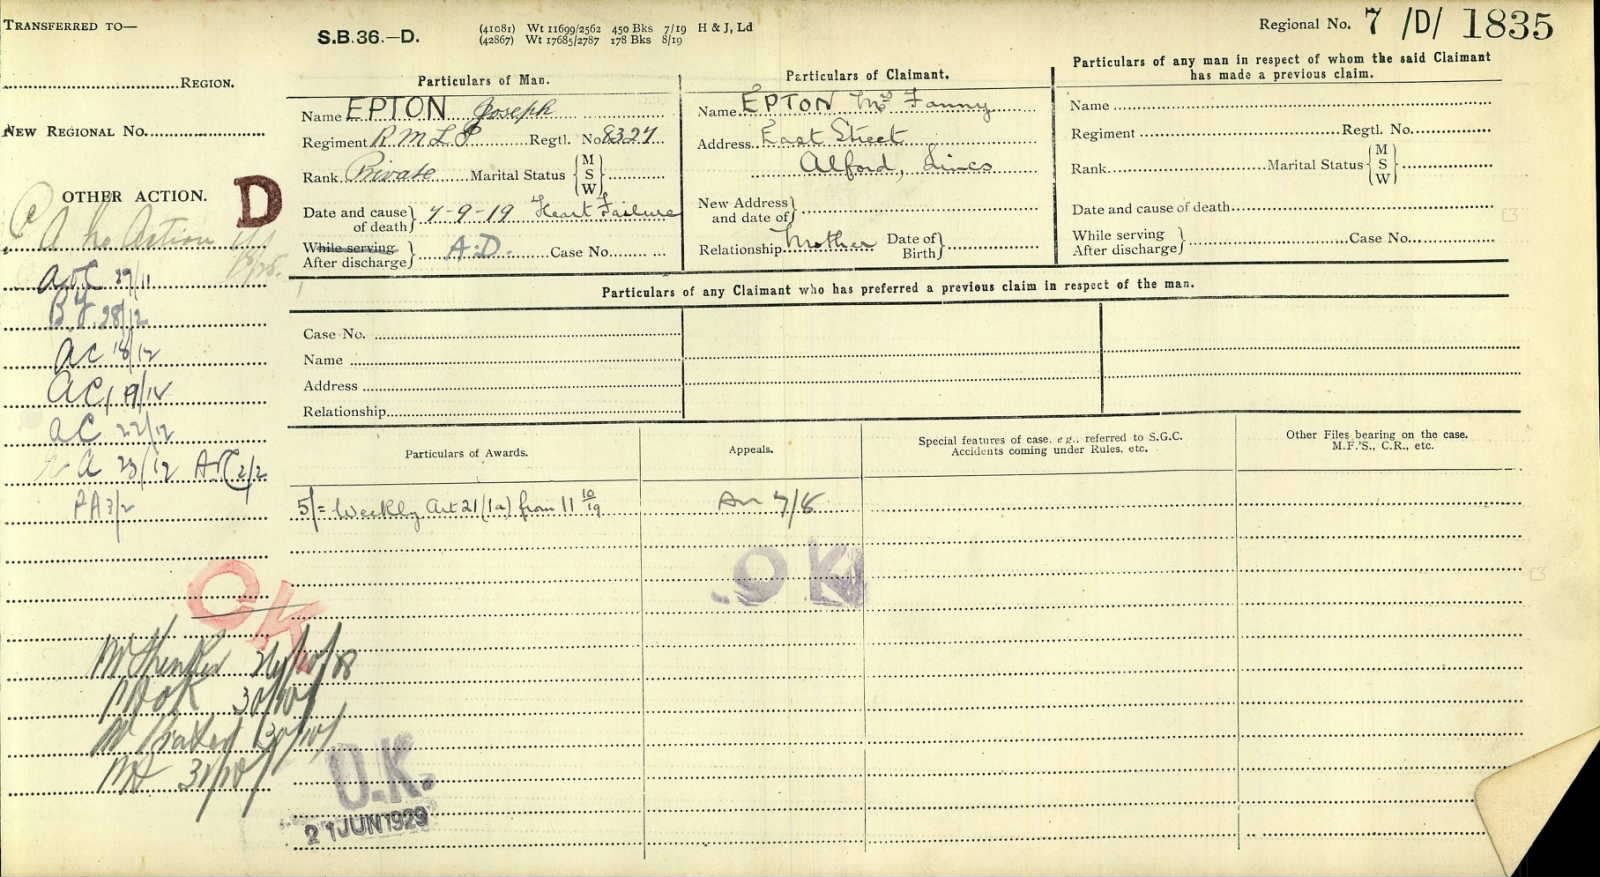 TRANSFERRED TO—
REGION.
NEW REGIONAL No.
OTHER ACTION.
D
P A No Action
28/12
AC 18/12
AC 19/12
AC 22/12
A 23/12
2/2
PA 3/2
OK
30/10
31/10
S.B.36.—D.
(41081) Wt 11699/2562 450 Bks 7/19 H & J, Ld
(42867) Wt 17685/2787 178 Bks 8/19
Regional No. 7 /D/ 1835
Particulars of Man.
Name EPTON Joseph
Regiment R M L I Regtl. No 8327
Rank Private Marital Status { M S W }
Date and cause of death } 7-9-19 Heart Failure
While serving
After discharge } A.D. Case No.
Particulars of Claimant.
Name EPTON Mrs Fanny
Address East Street
Alford, Lincs
New Address and date of }
Relationship Mother Date of Birth }
Particulars of any man in respect of whom the said Claimant
has made a previous claim.
Name
Regiment Regtl. No.
Rank Marital Status { M S W }
Date and cause of death
While serving
After discharge } Case No.
Particulars of any Claimant who has preferred a previous claim in respect of the man.
Case No.
Name
Address
Relationship
Particulars of Awards.
Appeals.
Special features of case, e g., referred to S.G.C.
Accidents coming under Rules, etc.
Other Files bearing on the case.
M.F.'S., C.R., etc.
5/= Weekly Art 21 (1a) from 11 10/19
7/8
OK
O.K.
21 JUN 1929